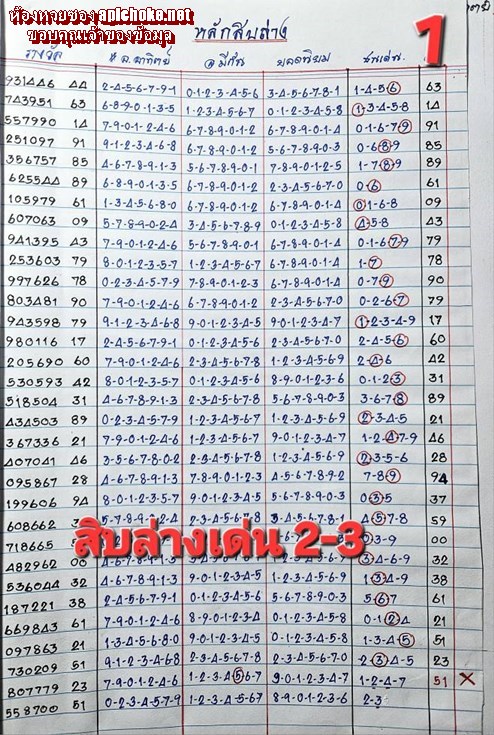 ห้องหวยของ apichoke.net
ขอบคุณเจ้าของข้อมูล
หลักสิบล่าง
1
รางวัล มีกัน ยอดนิยม ชนเด่น
931446 44 2-4-5-6-7-9-1 0-1-2-3-4-5-6 3-4-5-6-7-8-1 1-4-5-6 63
743951 63 6-8-9-0-1-3-5 1-2-3-4-5-6-7 0-1-2-3-4-5-8 1-3-4-5-8 14
557990 14 7-9-0-1-2-4-6 6-7-8-9-0-1-2 6-7-8-9-0-1-4 0-1-6-7-9 91
251097 91 9-1-2-3-4-6-8 6-7-8-9-0-1-2 4-5-6-7-8-9-0 0-6-8-9 85
356757 85 4-6-7-8-9-1-3 5-6-7-8-9-0-1 7-8-9-0-1-2-5 1-7-8-9 89
625544 89 6-8-9-0-1-3-5 6-7-8-9-0-1-2 2-3-4-5-6-7-0 0-6 61
105979 61 1-3-4-5-6-8-0 6-7-8-9-0-1-2 6-7-8-9-0-1-4 0-1-6-8 09
607063 09 5-7-8-9-0-2-4 3-4-5-6-7-8-9 0-1-2-3-4-5-8 4-5-8 43
941395 43 7-9-0-1-2-4-6 5-6-7-8-9-0-1 6-7-8-9-0-1-4 0-1-6-7-9 79
253603 79 8-0-1-2-3-5-7 1-2-3-4-5-6-7 6-7-8-9-0-1-4 1-7 78
997626 78 0-2-3-4-5-7-9 7-8-9-0-1-2-3 6-7-8-9-0-1-4 0-7-9 90
803481 90 7-9-0-1-2-4-6 6-7-8-9-0-1-2 2-3-4-5-6-7-0 0-2-6-7 79
943598 79 9-1-2-3-4-6-8 9-0-1-2-3-4-5 9-0-1-2-3-4-7 1-2-3-4-9 17
980116 17 2-4-5-6-7-9-1 0-1-2-3-4-5-6 2-3-4-5-6-7-0 2-4-5-6 60
205690 60 7-9-0-1-2-4-6 2-3-4-5-6-7-8 1-2-3-4-5-6-9 2-4-6 42
530593 42 8-0-1-2-3-5-7 0-1-2-3-4-5-6 8-9-0-1-2-3-6 0-1-2-3 31
518504 31 4-6-7-8-9-1-3 2-3-4-5-6-7-8 5-6-7-8-9-0-3 3-6-7-8 89
434503 89 0-2-3-4-5-7-9 1-2-3-4-5-6-7 1-2-3-4-5-6-9 2-3-4-5 21
367336 21 7-9-0-1-2-4-6 1-2-3-4-5-6-7 9-0-1-2-3-4-7 1-2-4-7-9 46
407041 46 3-5-6-7-8-0-2 2-3-4-5-6-7-8 1-2-3-4-5-6-9 2-3-5-6 28
095867 28 4-6-7-8-9-1-3 7-8-9-0-1-2-3 4-5-6-7-8-9-2 7-8-9 94
199606 94 8-0-1-2-3-5-7 9-0-1-2-3-4-5 5-6-7-8-9-0-3 0-3-5 37
608662 5-7-8-9-0-2-4 4-5-7-8 59
สิบล่างเด่น 2-3
718665 0-3-9 00
482962 00 3-4-6-9 32
536044 32 4-6-7-8-9-1-3 9-0-1-2-3-4-5 1-2-3-4-5-6-9 1-3-4-9 38
187221 38 2-4-5-6-7-9-1 0-1-2-3-4-5-6 5-6-7-8-9-0-3 5-6-7 61
669843 61 7-9-0-1-2-4-6 8-9-0-1-2-3-4 0-1-2-3-4-5-8 0-1-2-4 21
097863 21 1-3-4-5-6-8-0 9-0-1-2-3-4-5 0-1-2-3-4-5-8 1-3-4-5 51
730209 51 9-1-2-3-4-6-8 2-3-4-5-6-7-8 2-3-4-5-6-7-0 2-3-4-5 23
807779 23 7-9-0-1-2-4-6 1-2-3-4-5-6-7 9-0-1-2-3-4-7 1-2-4-7 51 ×
558700 51 0-2-3-4-5-7-9 1-2-3-4-5-6-7 8-9-0-1-2-3-6 2-3